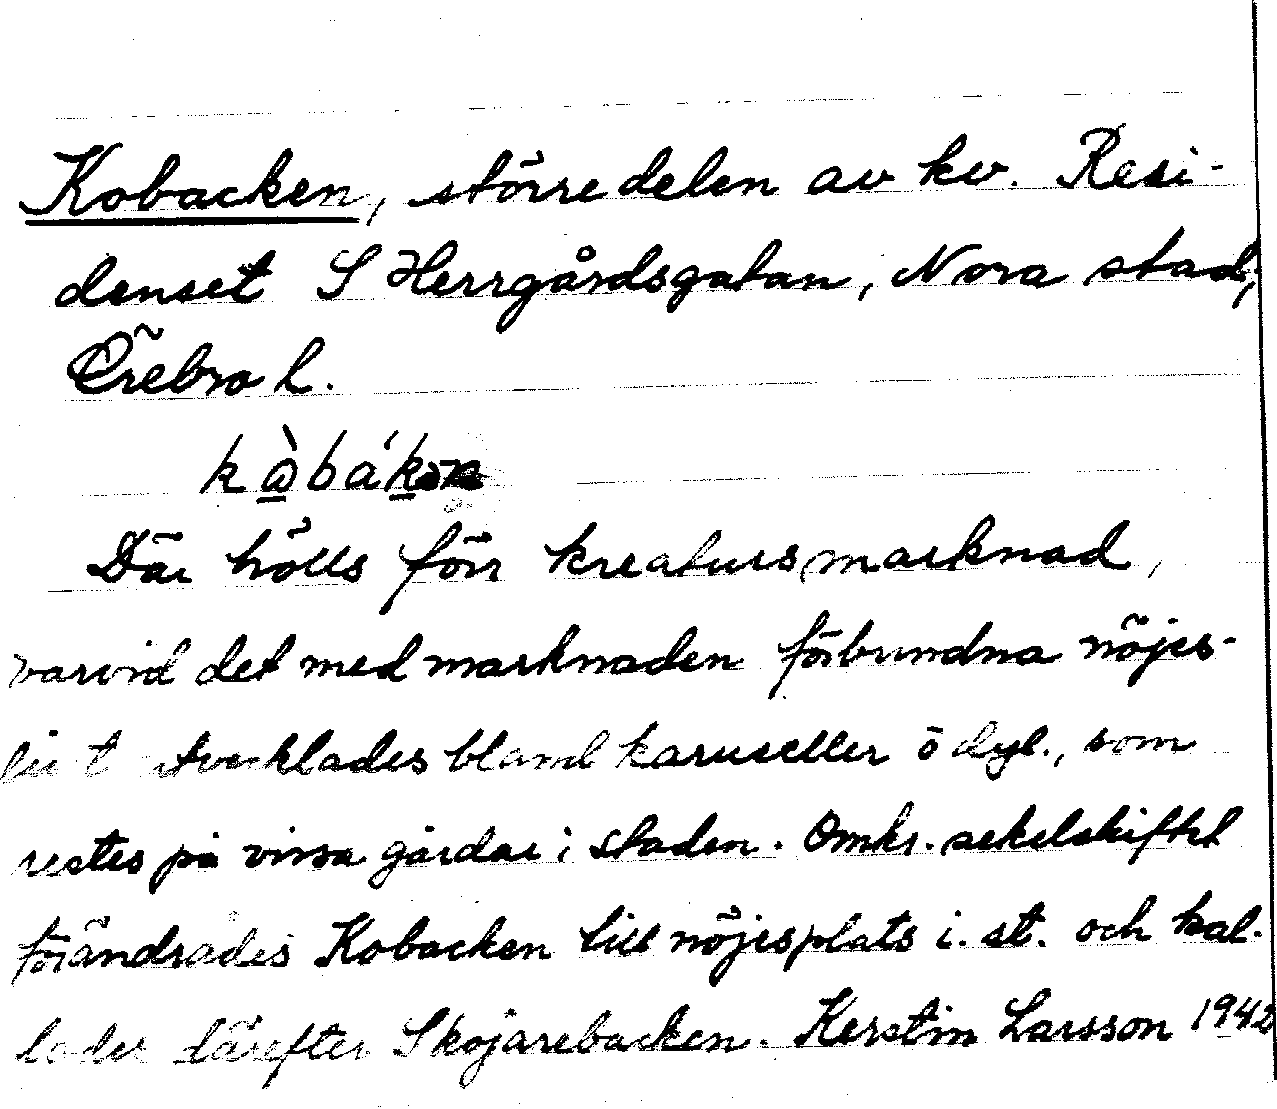 Kobacken, större delen av kv. Resi-
denset S Herrgårdsgatan, Nora stad,
Örebro l.
kàbákən
Där hölls förr kreatursmarknad,
varvid det med marknaden förbundna nöjes-
livet utvecklades bland karuseller o dyl., som
restes på vissa gårdar i staden. Omkr. sekelskiftet
förändrades Kobacken till nöjesplats i. st. och kal-
lades därefter Skojarebacken. Kerstin Larsson 1942